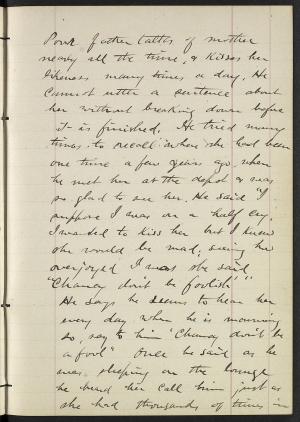 Poor father talks of mother
nearly all the time, & kisses her
likeness many times a day. He
cannot utter a sentence about
her without breaking down before
it is finished. He tried many
times to recall where she had been
one time a few years ago when
he met her at the depot & was
so glad to see her. He said "I
suppose I was on a half cry.
I wanted to kiss her but I knew
she would be mad, seeing how
overjoyed I was she said
"Chancy don't be foolish""
He says he seems to hear her
every day when he is mourning
so, say to him "Chancy don't be
a fool" Once he said as he
was sleeping on the lounge
he heard her call him just as
she had thousands of times in